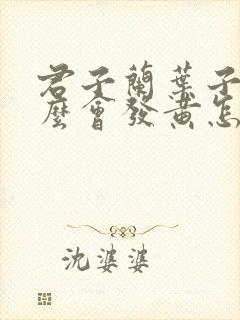 君子蘭葉子
麼會發黃怎
沈婆婆